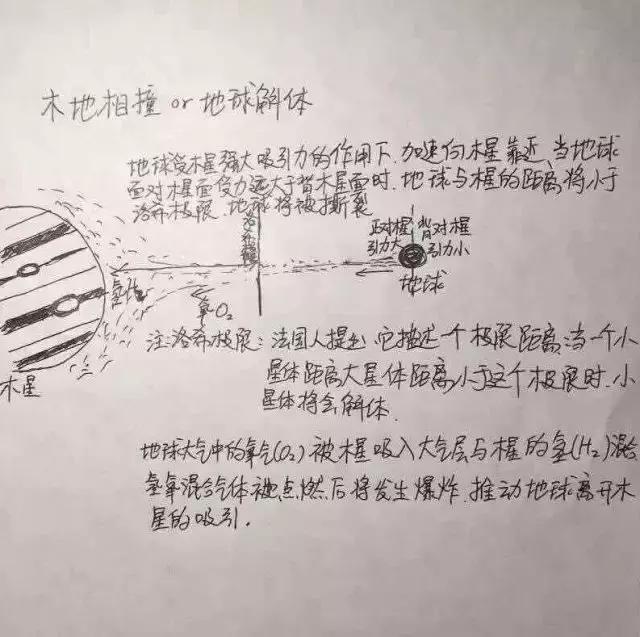 木地相撞 or 地球解体
地球受木星强大吸引力的作用下,加速向木星靠近,当地球
面对木星面受力远大于背木星面时,地球与木星的距离将小于
洛希极限,地球将被撕裂
洛希极限
正对木星
引力大
背对木星
引力小
地球
氢H₂
氧O₂
木星
注:洛希极限:法国人提出,它描述一个极限距离,当一个小
星体距离大星体距离小于这个极限时,小
星体将会解体.
地球大气中的氧气(O₂)被木星吸入大气层与木星的氢(H₂)混合
氢氧混合气体被点燃后将发生爆炸,推动地球离开木
星的吸引.